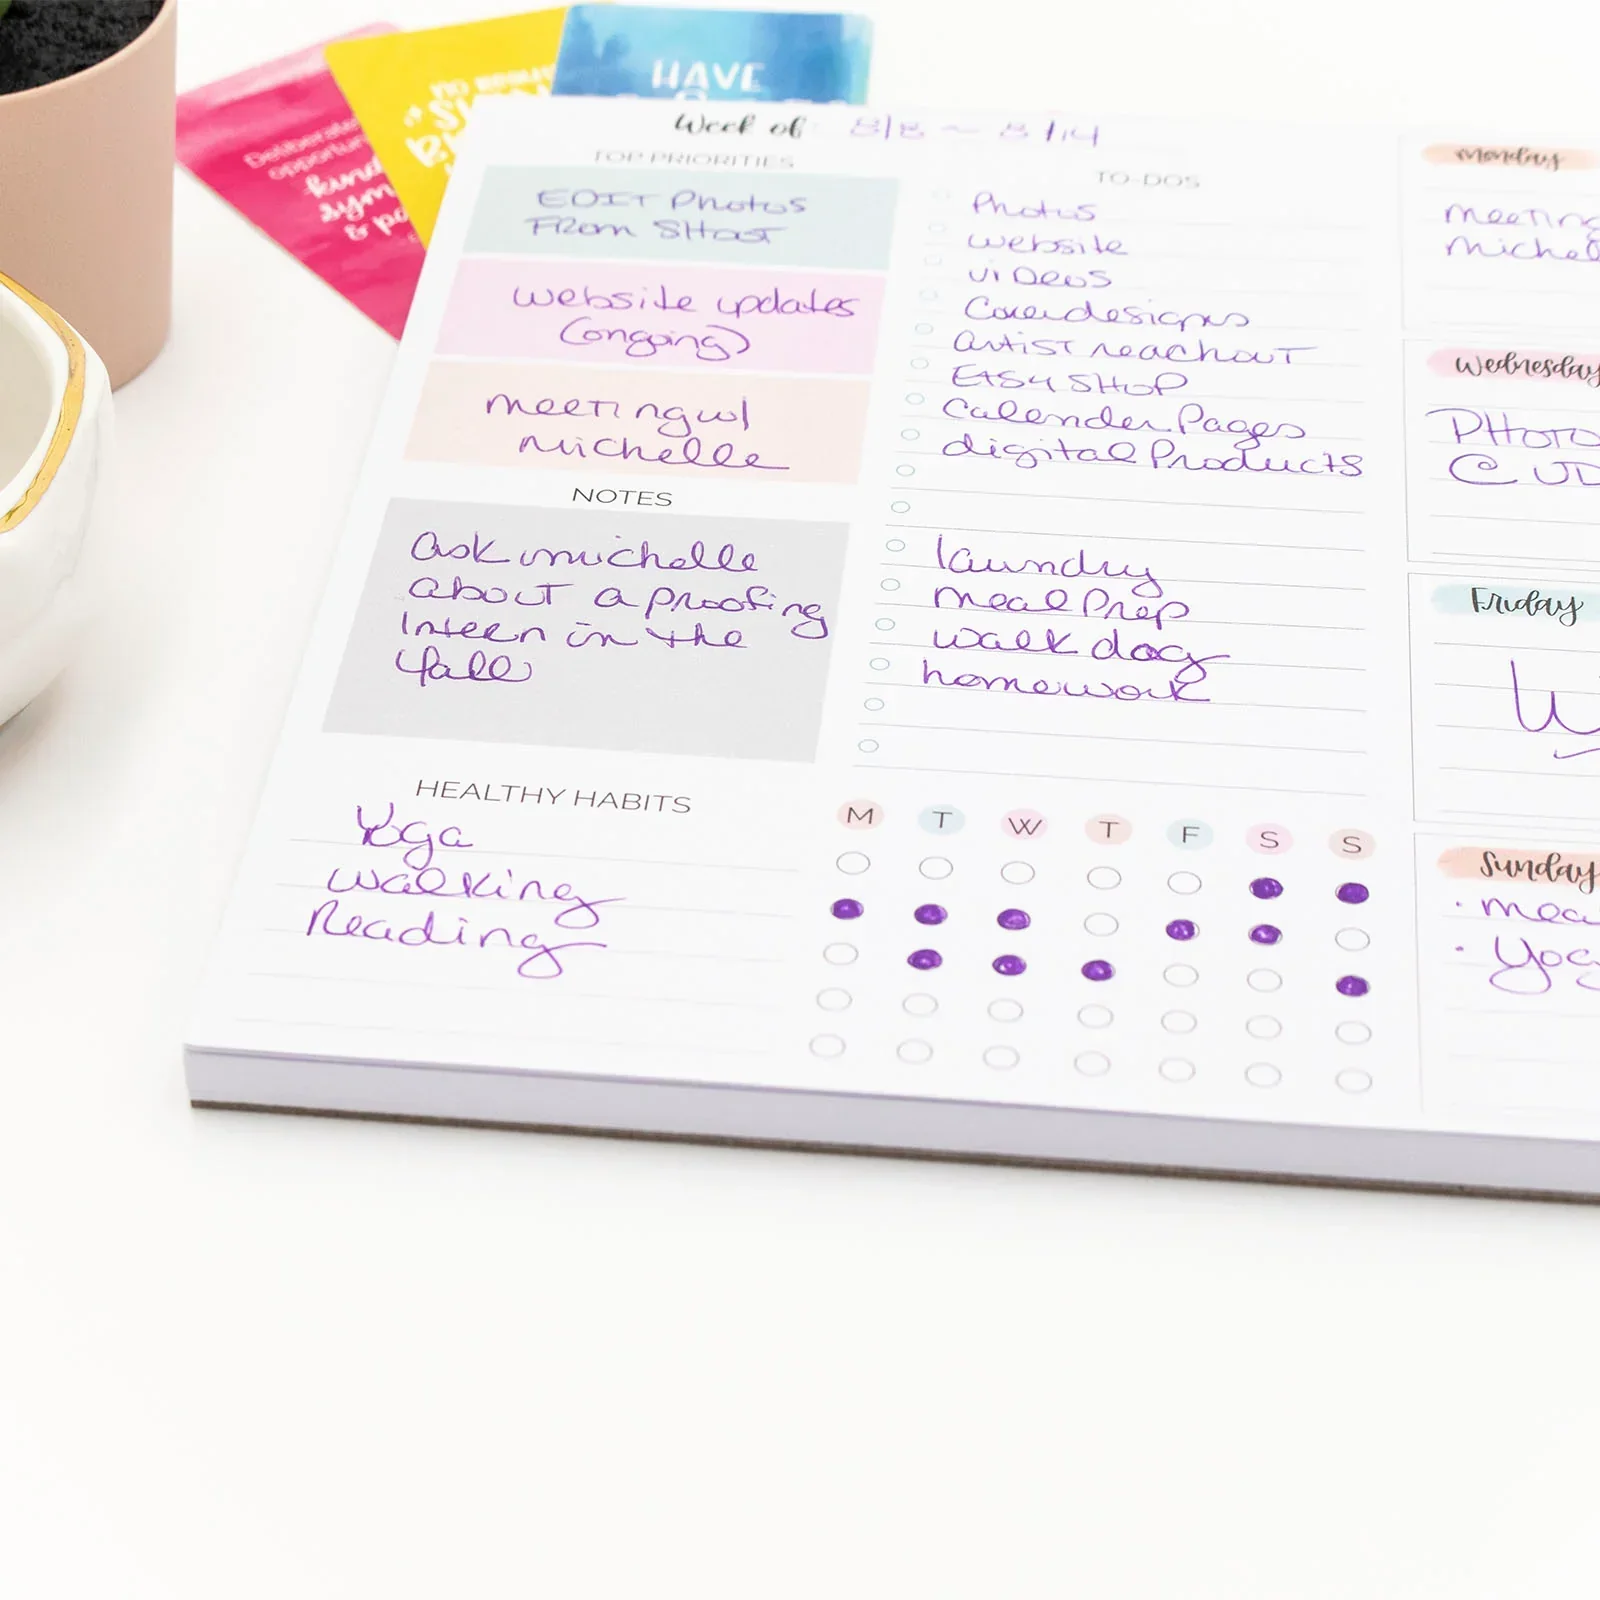 Deliberate
kind
HAVE
Week of: 8/8 ~ 8/14
TOP PRIORITIES
EDIT Photos
From SHast
website updates
(ongoing)
meeting w/
michelle
NOTES
ask michelle
about a proofing
Intern in the
fall
HEALTHY HABITS
Yoga
walking
Reading
TO-DOS
Photos
website
viDeos
Coverdesigns
artist reachout
Etsy SHop
Calender Pages
digital Products
laundry
meal Prep
walk dog
homework
M T W T F S S
monday
meeting
michel
Wednesday
PHoto
Friday
Sunday
· mea
· Yog